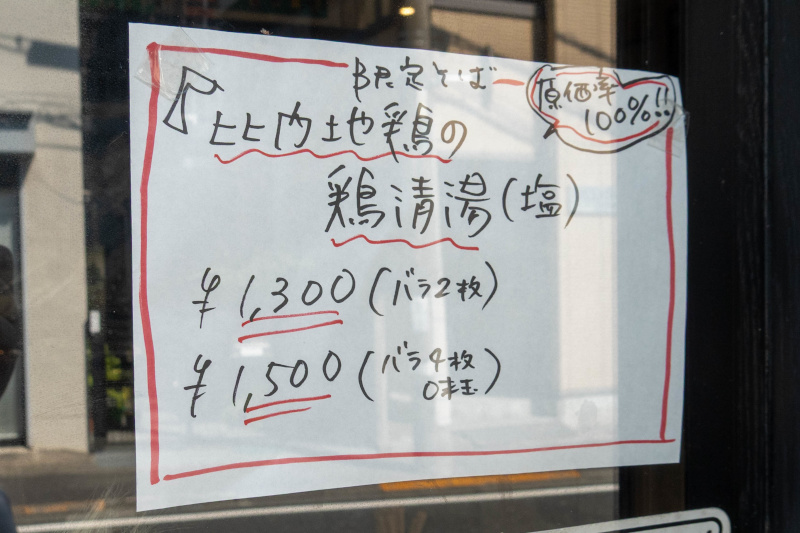 限定そば
原価率
100%!!
比内地鶏の
鶏清湯(塩)
¥1,300(バラ2枚)
¥1,500(バラ4枚
味玉)